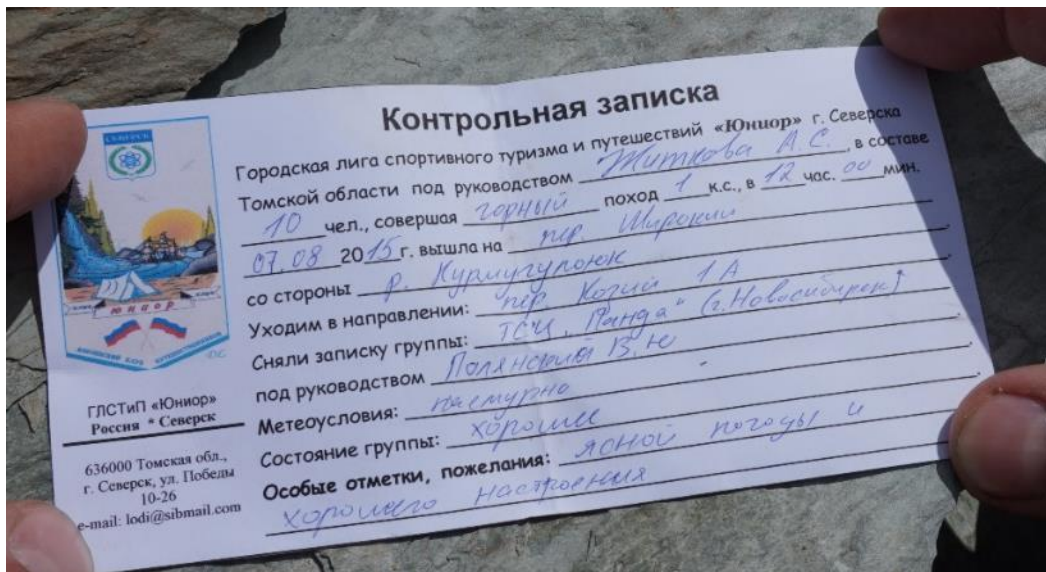 СЕВЕРСК
юниор
ГЛСТиП «Юниор»
Россия * Северск
636000 Томская обл.,
г. Северск, ул. Победы
10-26
e-mail: lodi@sibmail.com
Контрольная записка
Городская лига спортивного туризма и путешествий «Юниор» г. Северска
Томской области под руководством Житкова А. С., в составе
10 чел., совершая горный поход 1 к.с., в 12 час. 00 мин.
07.08 2015 г. вышла на пер. Широкий
со стороны р. Курмугулоюк.
Уходим в направлении: пер. Козий 1А.
Сняли записку группы: ТСЦ „Панда" (г. Новосибирск)
под руководством Полянский В. Ю.
Метеоусловия: пасмурно
Состояние группы: хорошее.
Особые отметки, пожелания: ясной погоды и
хорошего настроения